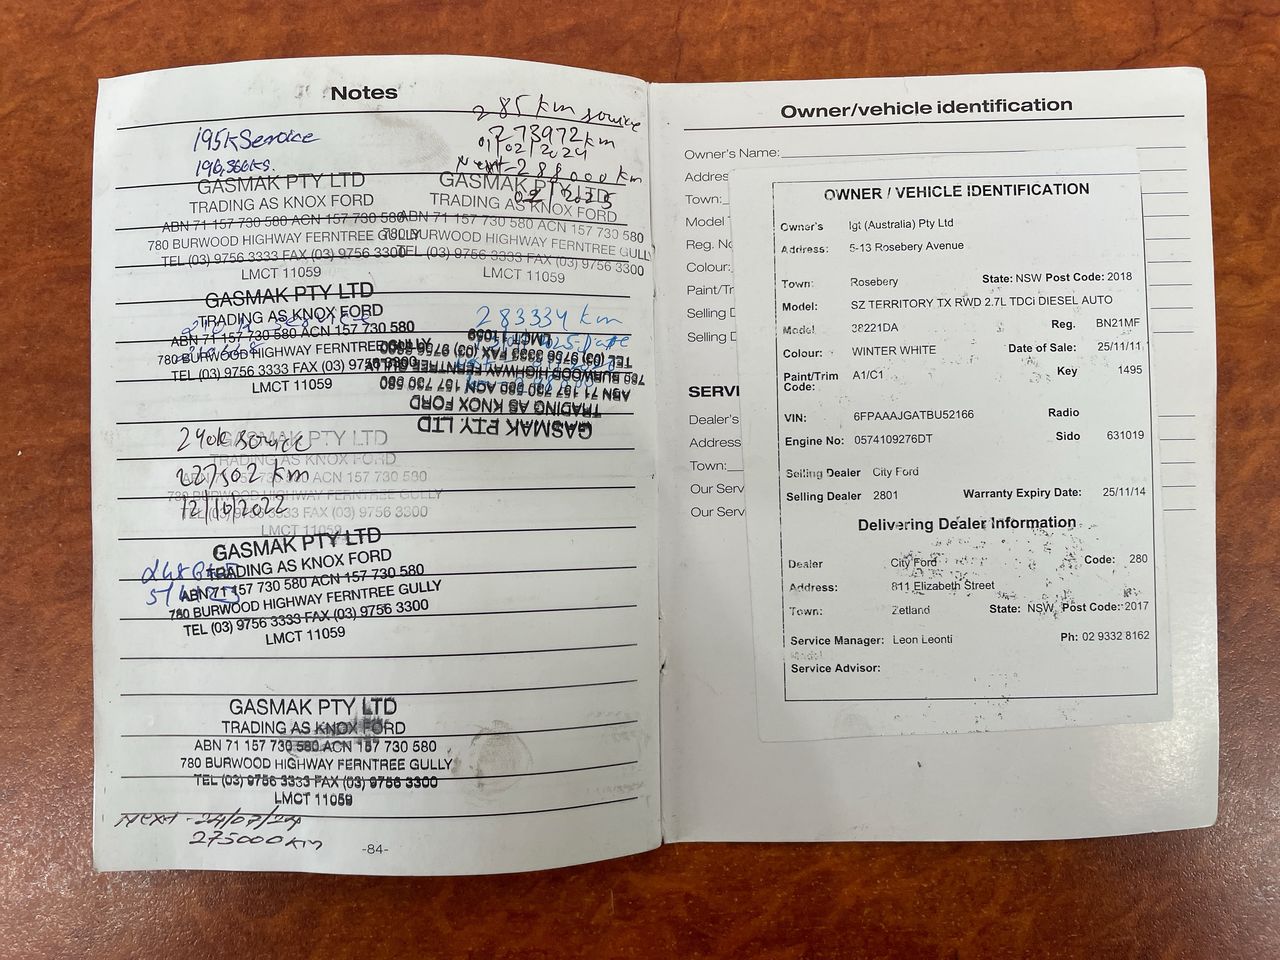 Notes
195k Service
196,366ks.
GASMAK PTY LTD
TRADING AS KNOX FORD
ABN 71 157 730 580 ACN 157 730 580
780 BURWOOD HIGHWAY FERNTREE GULLY
TEL (03) 9756 3333 FAX (03) 9756 3300
LMCT 11059
285 km service
273972km
01/02/2024
Next - 288000 km
02/2025
GASMAK PTY LTD
TRADING AS KNOX FORD
ABN 71 157 730 580 ACN 157 730 580
780 BURWOOD HIGHWAY FERNTREE GULLY
TEL (03) 9756 3333 FAX (03) 9756 3300
LMCT 11059
GASMAK PTY LTD
TRADING AS KNOX FORD
ABN 71 157 730 580 ACN 157 730 580
780 BURWOOD HIGHWAY FERNTREE GULLY
TEL (03) 9756 3333 FAX (03) 9756 3300
LMCT 11059
283334 km
GASMAK PTY LTD
TRADING AS KNOX FORD
ABN 71 157 730 580 ACN 157 730 580
780 BURWOOD HIGHWAY FERNTREE GULLY
TEL (03) 9756 3333 FAX (03) 9756 3300
LMCT 11059
240k service
227502 km
12/10/2022
GASMAK PTY LTD
TRADING AS KNOX FORD
ABN 71 157 730 580 ACN 157 730 580
780 BURWOOD HIGHWAY FERNTREE GULLY
TEL (03) 9756 3333 FAX (03) 9756 3300
LMCT 11059
GASMAK PTY LTD
TRADING AS KNOX FORD
ABN 71 157 730 580 ACN 157 730 580
780 BURWOOD HIGHWAY FERNTREE GULLY
TEL (03) 9756 3333 FAX (03) 9756 3300
LMCT 11059
GASMAK PTY LTD
TRADING AS KNOX FORD
ABN 71 157 730 580 ACN 157 730 580
780 BURWOOD HIGHWAY FERNTREE GULLY
TEL (03) 9756 3333 FAX (03) 9756 3300
LMCT 11059
Next - 24/07/24
275000km
-84-
Owner/vehicle identification
Owner's Name:
Addres
Town:
Model
Reg. No
Colour:
Paint/Tr
Selling D
Selling D
SERVI
Dealer's
Address
Town:
Our Serv
Our Serv
OWNER / VEHICLE IDENTIFICATION
Owner's Igt (Australia) Pty Ltd
Address: 5-13 Rosebery Avenue
Town: Rosebery State: NSW Post Code: 2018
Model: SZ TERRITORY TX RWD 2.7L TDCi DIESEL AUTO
Model 38221DA Reg. BN21MF
Colour: WINTER WHITE Date of Sale: 25/11/11
Paint/Trim Code: A1/C1 Key 1495
VIN: 6FPAAAJGATBU52166 Radio
Engine No: 0574109276DT Sido 631019
Selling Dealer City Ford
Selling Dealer 2801 Warranty Expiry Date: 25/11/14
Delivering Dealer Information
Dealer City Ford Code: 280
Address: 811 Elizabeth Street
Town: Zetland State: NSW Post Code: 2017
Service Manager: Leon Leonti Ph: 02 9332 8162
Model
Service Advisor: